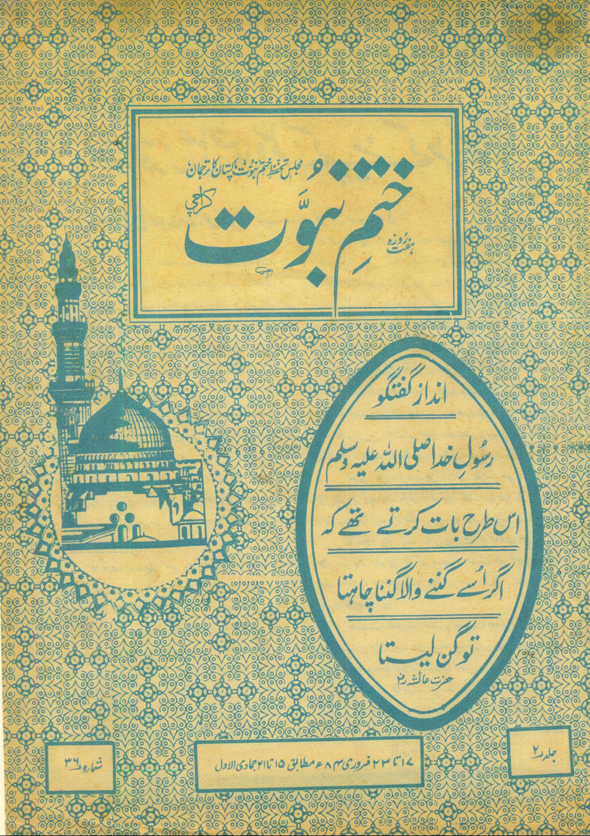 مجلس تحفظ ختم نبوت پاکستان کا ترجمان
ہفت روزہ
ختمِ نبوّت
کراچی
اندازِ گفتگو
رسُولِ خدا صلی اللہ علیہ وسلم
اس طرح بات کرتے تھے کہ
اگر اُسے گننے والا گننا چاہتا
تو گن لیتا
حضرت عائشہ رض
جلد ۲
۱۷ تا ۲۳ فروری ۸۴ء مطابق ۱۵ تا ۲۱ جمادی الاول
شمارہ ۳۶